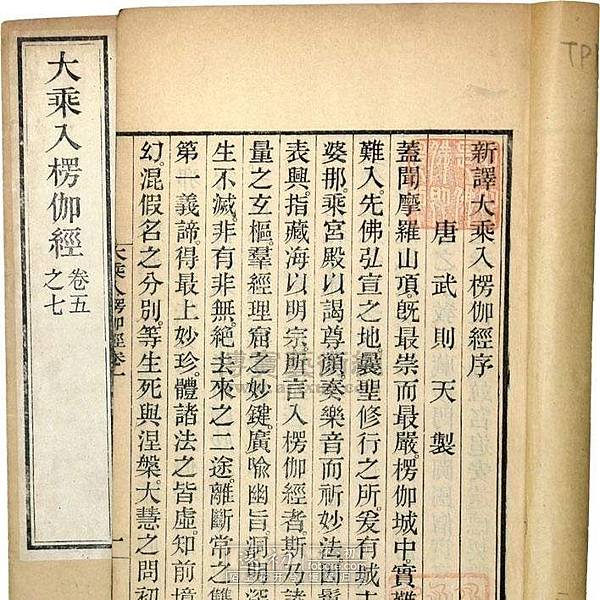 大乘入楞伽經 卷五之七
新譯大乘入楞伽經序
唐武則天製
蓋聞摩羅山頂。旣最崇而最嚴。楞伽城中。實難
難入。先佛弘宣之地。曩聖修行之所。爰有城主
婆那。乘宮殿以謁尊顏。奏樂音而祈妙法。因鬘
表興。指藏海以明宗。所言入楞伽經者。斯乃諸
量之玄樞。羣經理窟之妙鍵。廣喻幽旨。洞明深
生不滅。非有非無。絕去來之二途。離斷常之雙
第一義諦。得最上妙珍。體諸法之皆虛。知前境
幻。混假名之分別。等生死與涅槃。大慧之問初
大乘入楞伽經卷一
一